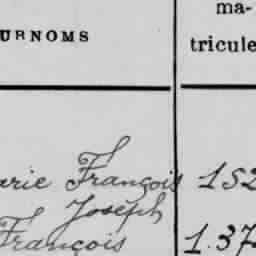 ma-
URNOMS
tricule
arie François 152
Joseph
François 1.37